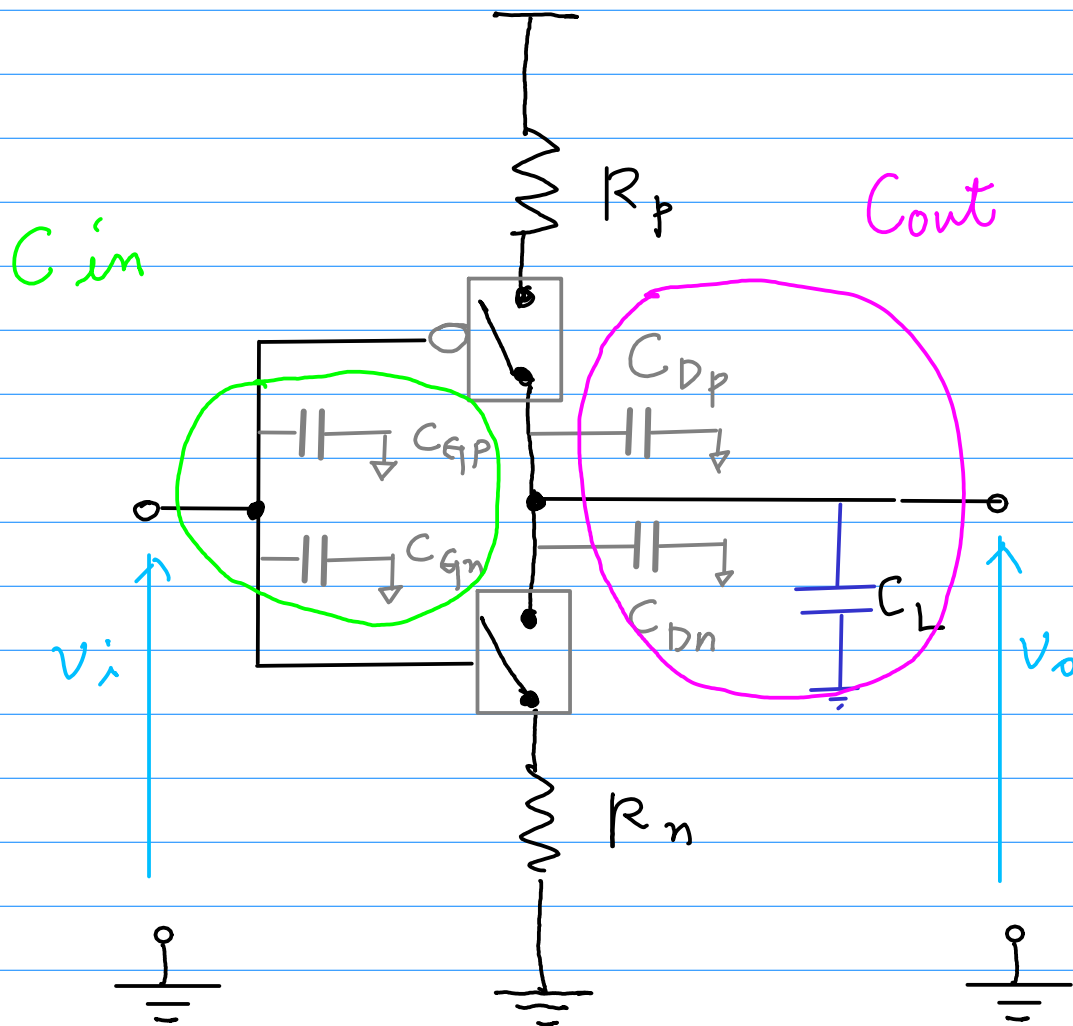 Rp
Cout
Cin
CDp
CGp
CGn
CL
CDn
vi
vo
Rn